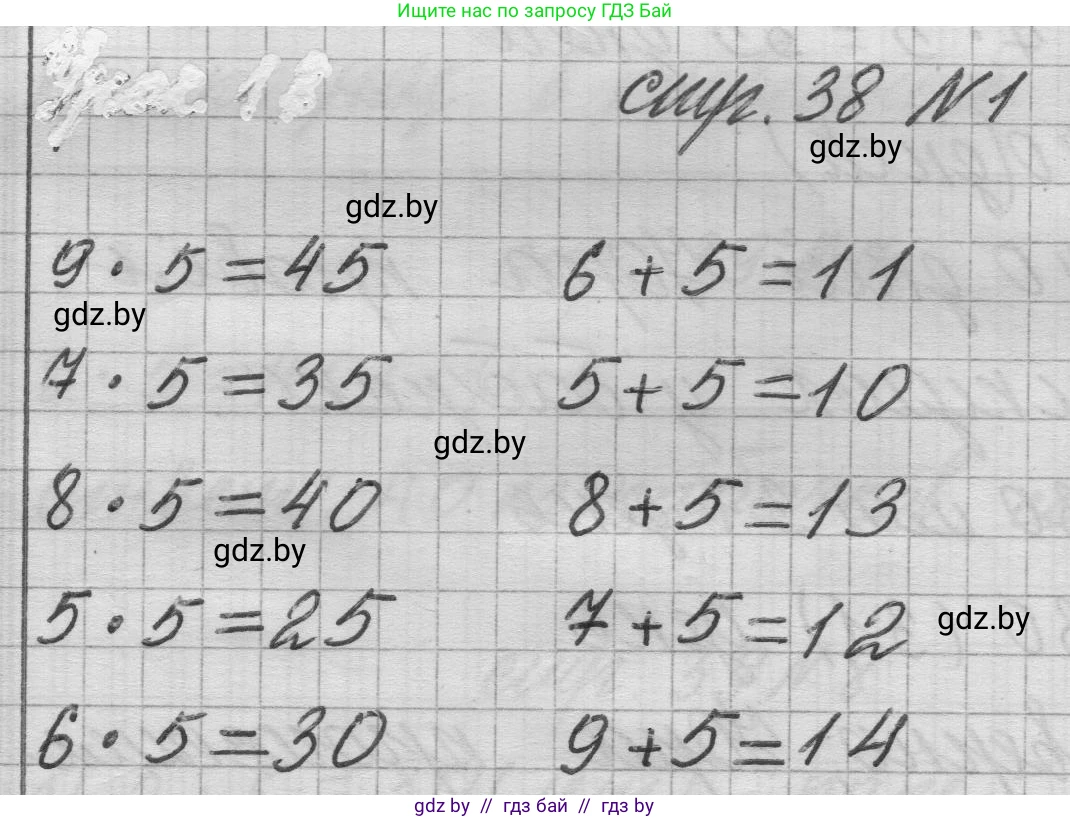 Ищите нас по запросу ГДЗ Бай
Урок 11
стр. 38 №1
gdz.by
gdz.by
9 · 5 = 45 6 + 5 = 11
gdz.by
7 · 5 = 35 5 + 5 = 10
gdz.by
8 · 5 = 40 8 + 5 = 13
gdz.by
5 · 5 = 25 7 + 5 = 12
gdz.by
6 · 5 = 30 9 + 5 = 14
gdz by // гдз бай // гдз by